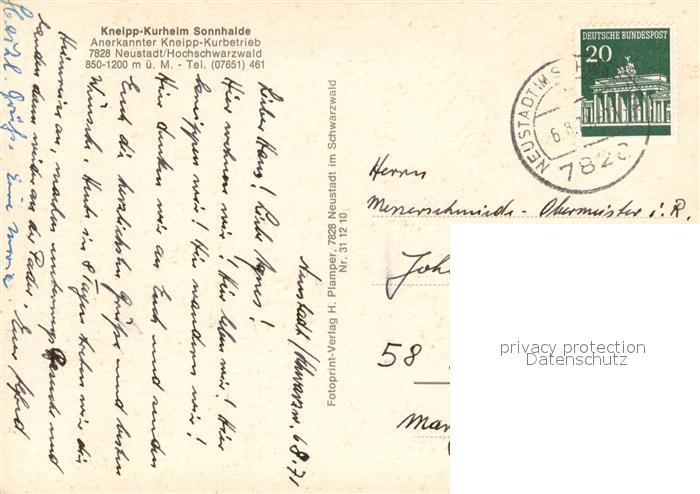 Kneipp-Kurheim Sonnhalde
Anerkannter Kneipp-Kurbetrieb
7828 Neustadt/Hochschwarzwald
850-1200 m ü. M. - Tel. (07651) 461
Neustadt/Schwarzw. 6.8.71
Liber Hans! Liebe Agnes!
Hier wohnen wir! Hier leben wir! Hier
kneippen wir! Hier wandern wir!
Hier denken wir an Euch und senden
Euch die herzlichsten Grüße und besten
Wünsche. Heute in 8 Tagen treten wir die
Heimreise an, machen unterwegs Besuche und
landen dann wieder an der Pader. Euer Alfred
Herzl. Grüße Eure Maria.
Fotoprint-Verlag H. Plamper, 7828 Neustadt im Schwarzwald
Nr. 31 12 10
DEUTSCHE BUNDESPOST
20
NEUSTADT IM S
6.8.
7828
Herrn
Messerschmiede-Obermeister i. R.
Joh
58
privacy protection
Datenschutz